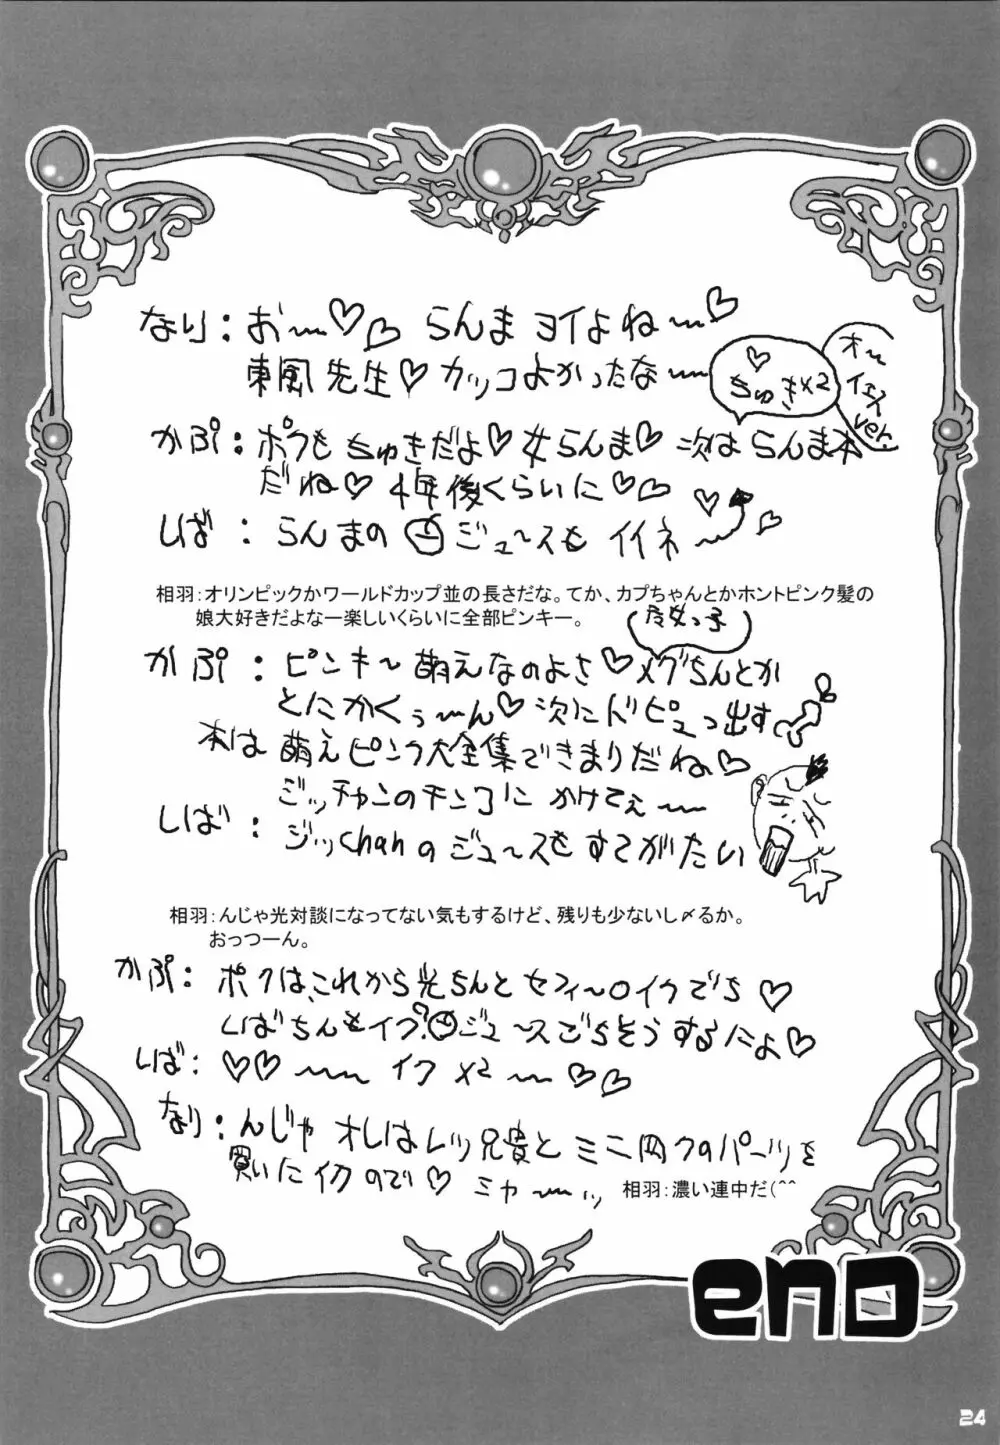 なり：お〜〜♡♡ らんま ヨイよね〜
東風先生♡カッコよかったな〜
♡ちゅき×2
オー
イェス
ver.
かぷ：ボクも ちゅきだよ♡女らんま♡ 次は らんま本
だね♡ 4年後くらいに♡♡
しば：らんまの ジュースも イイネ〜
相羽：オリンピックかワールドカップ並の長さだな。てか、カプちゃんとかホントピンク髪の
娘大好きだよなー楽しいくらいに全部ピンキー。
かぷ：ピンキー萌えなのよさ♡メグちんとか
とにかくぅ〜ん♡ 次にドピュっ出す
本は 萌えピンク大全集できまりだね♡
ジッチャンのチンコに かけてぇ〜
しば：ジッchanのジュースもすてがたい
相羽：んじゃ光対談になってない気もするけど、残りも少ないし〆るか。
おっつーん。
かぷ：ボクは、これから光ちんと セフィーロイクでち♡
しばちんもイク？ジュースごちそうするにょ♡
しば：♡♡〜〜 イク ×2 〜♡♡
なり：んじゃ オレはレツ兄貴と ミニ四クのパーツを
買いにイクので♡ ミャ〜〜ッ
相羽：濃い連中だ(^^
end
24